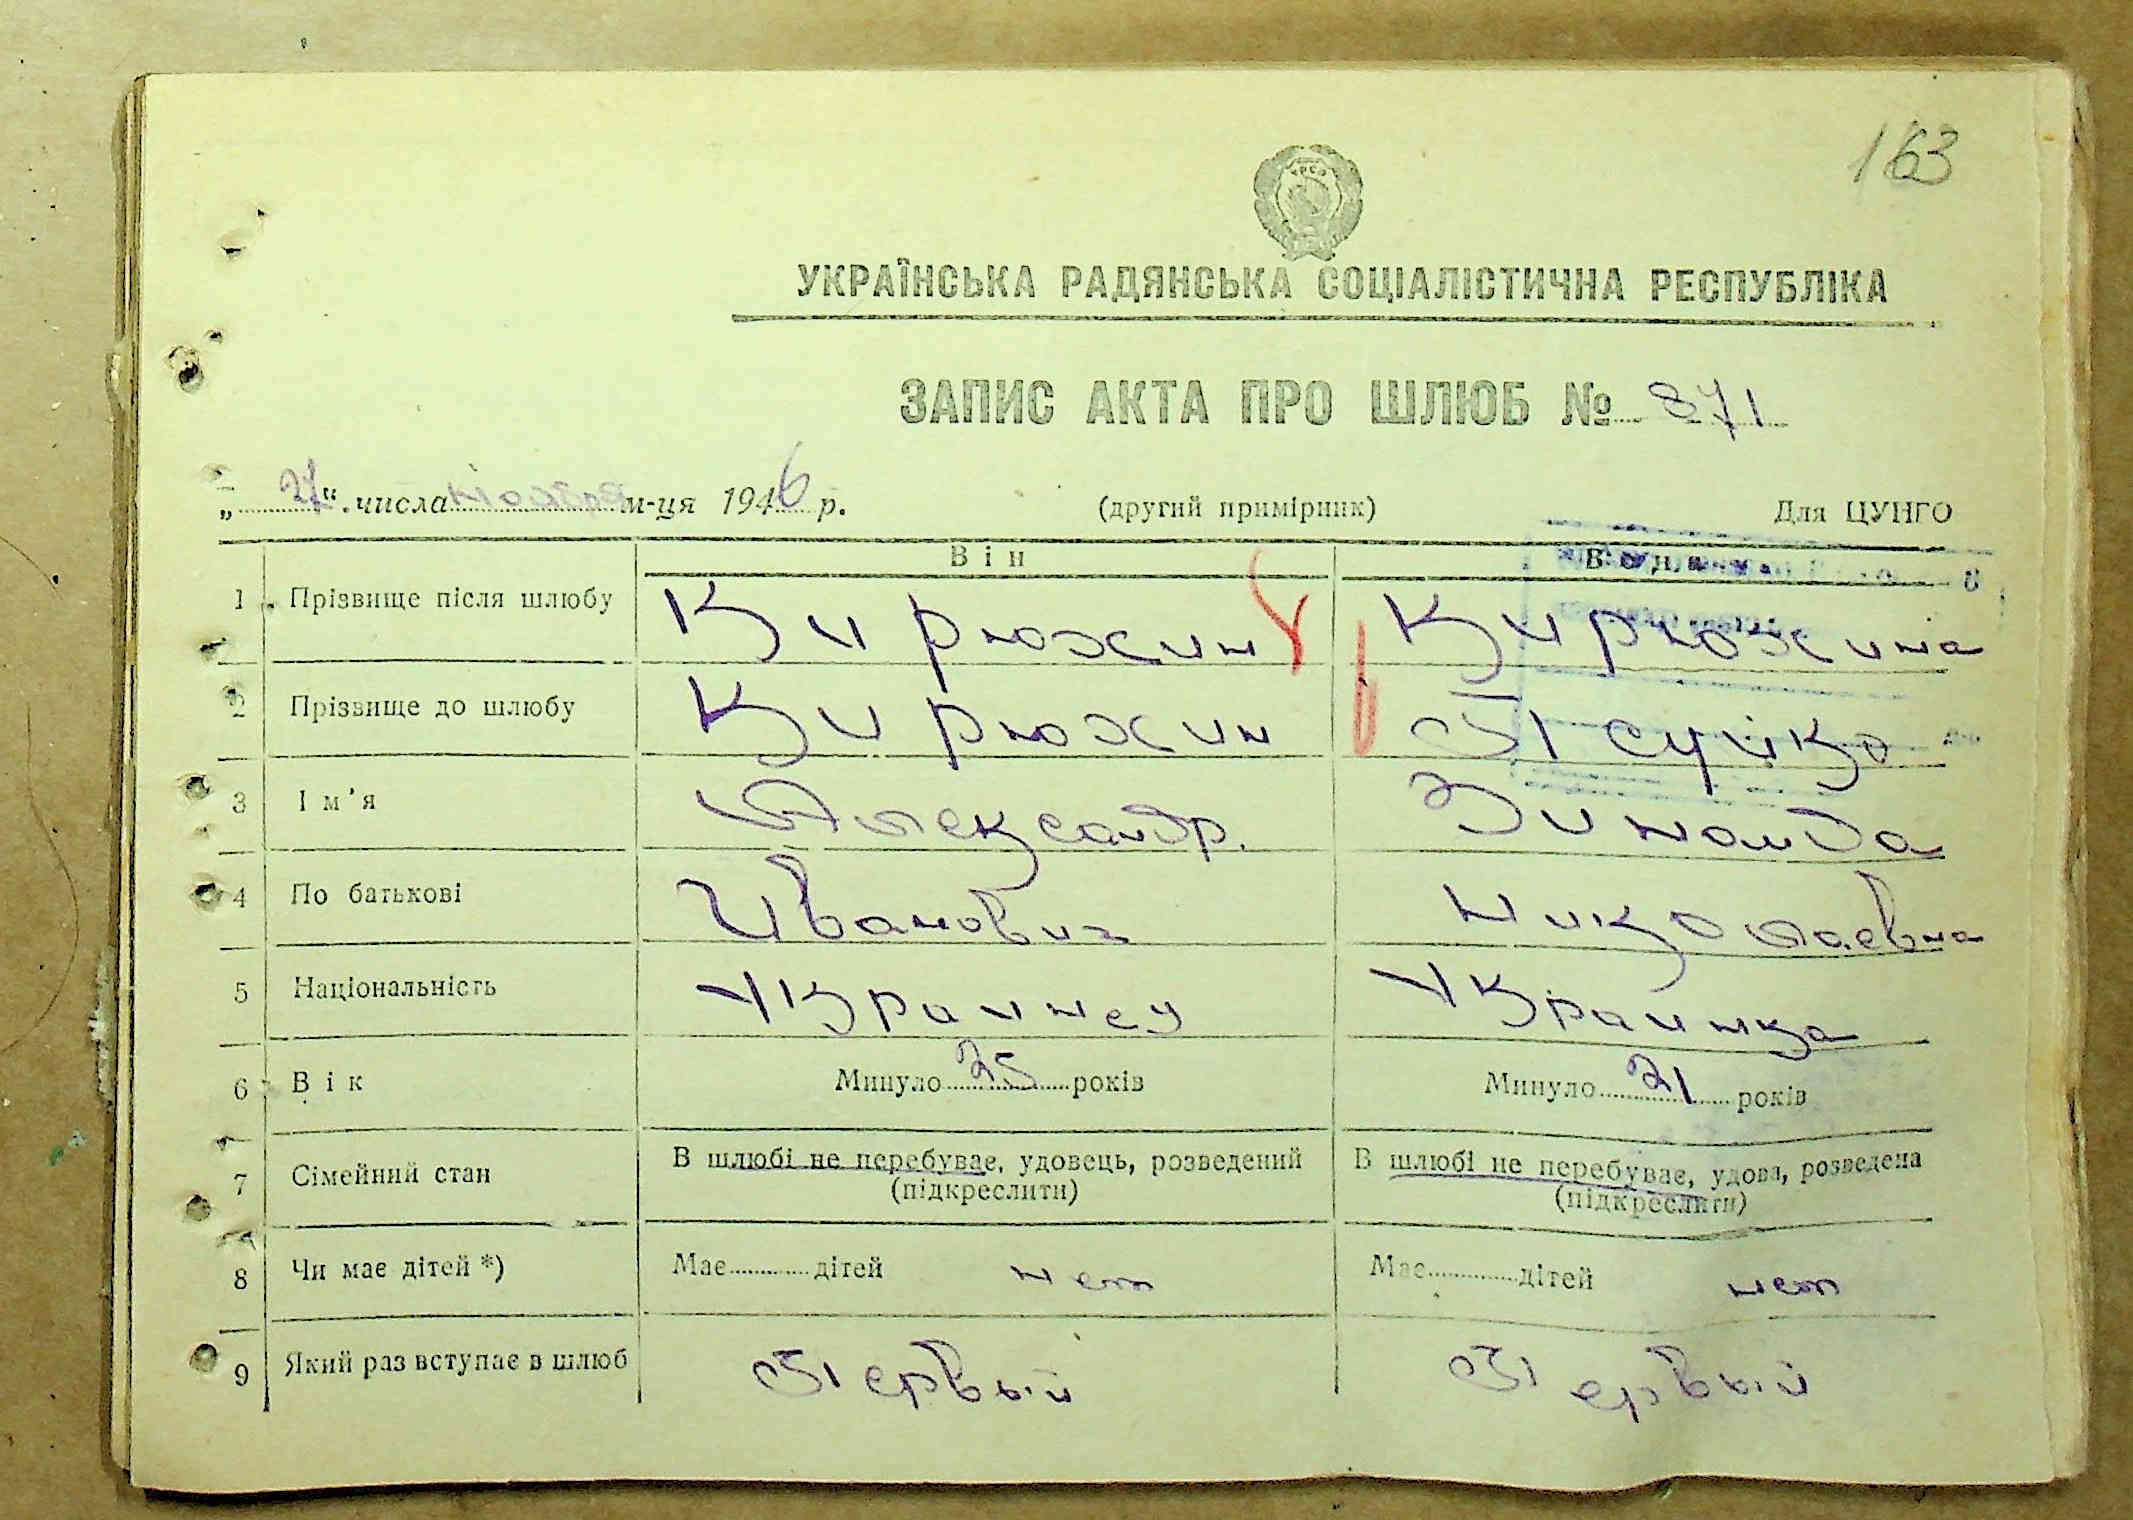 163
УКРАЇНСЬКА РАДЯНСЬКА СОЦІАЛІСТИЧНА РЕСПУБЛІКА
ЗАПИС АКТА ПРО ШЛЮБ № 871
„27“ числа Ноября м-ця 1946 р. (другий примірник) Для ЦУНГО
Він Вона
1 Прізвище після шлюбу Кирюхин Кирюхина
2 Прізвище до шлюбу Кирюхин
3 Ім'я Александр. Зинаида
4 По батькові Иванович Николаевна
5 Національність Украинец Украинка
6 Вік Минуло 25 років Минуло 21 років
7 Сімейний стан В шлюбі не перебуває, удовець, розведений В шлюбі не перебуває, удова, розведена
(підкреслити) (підкреслити)
8 Чи має дітей *) Має дітей нет Має дітей нет
9 Який раз вступає в шлюб Первый Первый